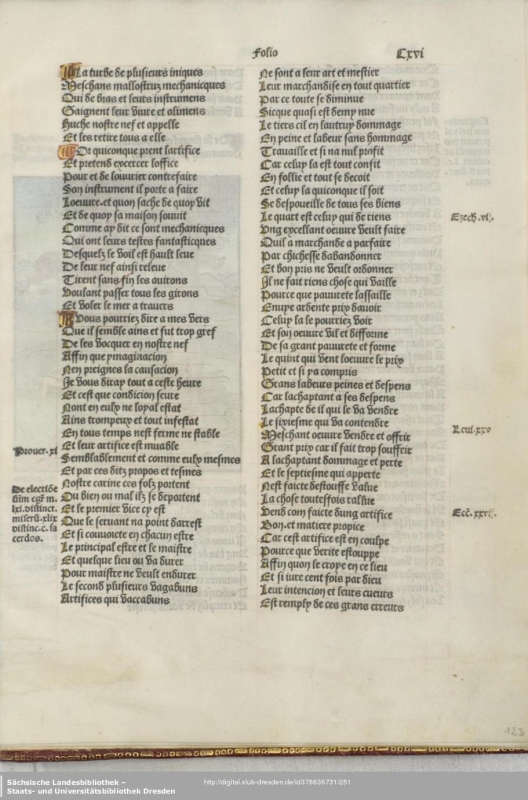 Folio Cxvi
La turbe de plusieurs iniques
Meschans mallostruz mechanicques
Qui de bras et leurs instrumens
Gaignent leur viure et alimens
Huche nostre nef et appelle
Et les retire tous a elle
Or quiconque prent lartifice
Et pretend excercer loffice
Pour et de louurier contrefaire
Son instrument il porte a faire
Loeuure et quon sache de quoy vit
Et de quoy sa maison souuit
Comme ay dit ce sont mechanicques
Qui ont leurs testes fantasticques
Desquelz le voil est hault leue
De leur nef ainsi releue
Tirent sans fin les auirons
Voulant passer tous les girons
Et voler le mer a trauers
Vous pourriez dire a mes vers
Que il semble ains et fut trop gref
De les bocquer en nostre nef
Affin que ymaginacion
Nen preignes la causacion
Je vous diray tout a ceste heure
Et cest que condicion seure
Nont en eulx ne loyal estat
Ains trompeux et tout infestat
En tous temps nest ferme ne stable
Prouer. xi
Et leur artifice est muable
Semblablement et comme eulx mesmes
Et par ces ditz propos et tesmes
Nostre carine ces folz portent
De electiōe
Ou bien ou mal ilz se deportent
Et le premier vice cy est
lxi. distinct.
Que le seruant na point darrest
miserū. xlix
Et si conuoicte en chacun estre
distinc. c. sa
Le principal estre et le maistre
cerdos.
Et quelque lieu ou va durer
Pour maistre ne veult endurer
Le second plusieurs vagabuns
Artifices qui vaccabuns
Ne sont a leur art et mestier
Leur marchandise en tout quartier
Par ce toute se diminue
Sicque quasi est demy nue
Le tiers cil en lautruy dommage
En peine et labeur sans hommage
Trauaille et si na nul profit
Car celuy la est tout confit
En follie et tout se decoit
Et celuy la quiconque il soit
Se despoueille de tous ses biens
Le quart est celuy qui de riens
Ezech. vii.
Vng excellant oeuure veult faire
Quil a marchande a parfaire
Par chichesse dabandonner
Et bon pris ne veult ordonner
Il ne fait riens chose qui vaille
Pource que pauurete lassaille
Enuye ardente prix dauoir
Celuy la le pourriez voir
Et son oeuure vil et difforme
De sa grant pauurete et forme
Le quint qui vent loeuure le prix
Petit et si ya compris
Grans labeurs peines et despens
Car lachaptant a ses despens
Lachapte de il qui le va vendre
Le sixiesme qui va contendre
Leui. xxv
Meschant oeuure vendre et offrir
Grant prix car il fait trop souffrir
A lachaptant dommage et perte
Et le septiesme qui apperte
Nest faicte destouffe value
La chose toutesfois rallue
Vend com faicte dung artifice
Ecc̄. xxvii.
Bon et matiere propice
Car cest artifice est en coulpe
Pource que verite estouppe
Affin quon le croye en ce lieu
Et si iure cent fois par dieu
Leur intencion et leurs cueurs
Est remply de ces grans erreurs
123
Sächsische Landesbibliothek –
Staats- und Universitätsbibliothek Dresden
http://digital.slub-dresden.de/id378636731/251